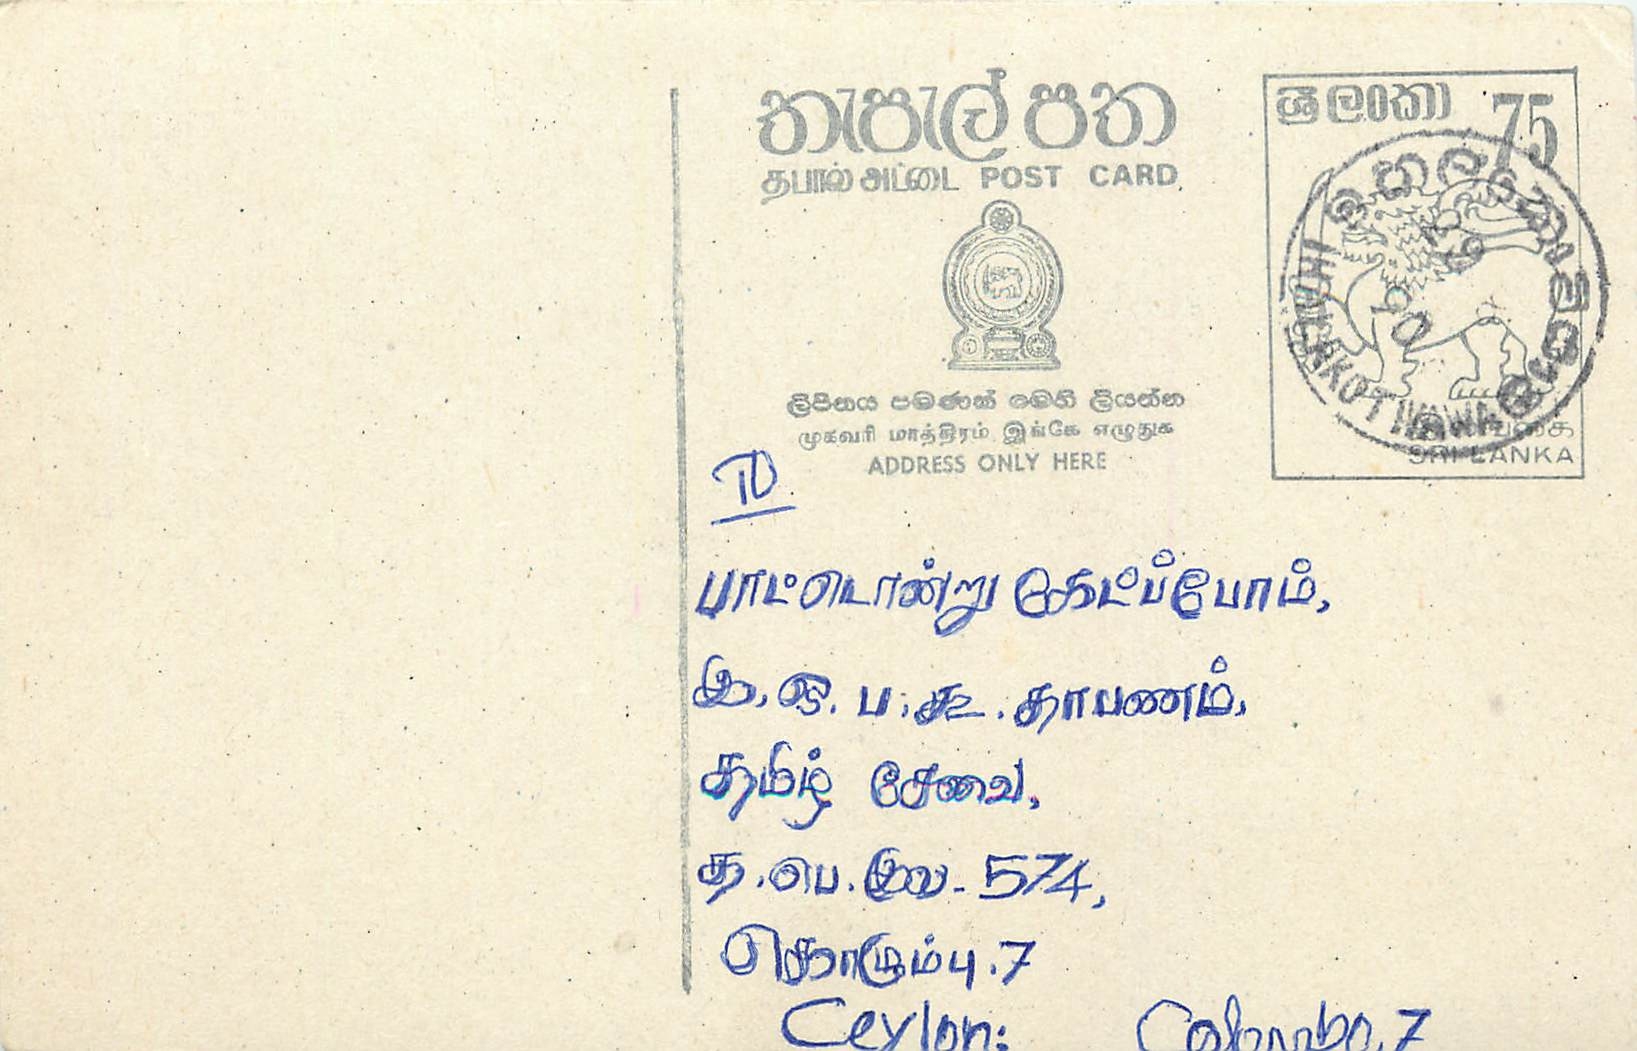 තැපැල් පත
தபால் அட்டை POST CARD
ශ්‍රී ලංකා 75
ලිපිනය පමණක් මෙහි ලියන්න
முகவரி மாத்திரம் இங்கே எழுதுக
ADDRESS ONLY HERE
இலங்கை
SRI LANKA
IV
பாட்டொன்று கேட்ப்போம்,
இ.ஒ.ப.கூ.தாபணம்,
தமிழ் சேவை,
த.பெ.இல- 574,
கொழும்பு.7
Ceylon: Colombo.7